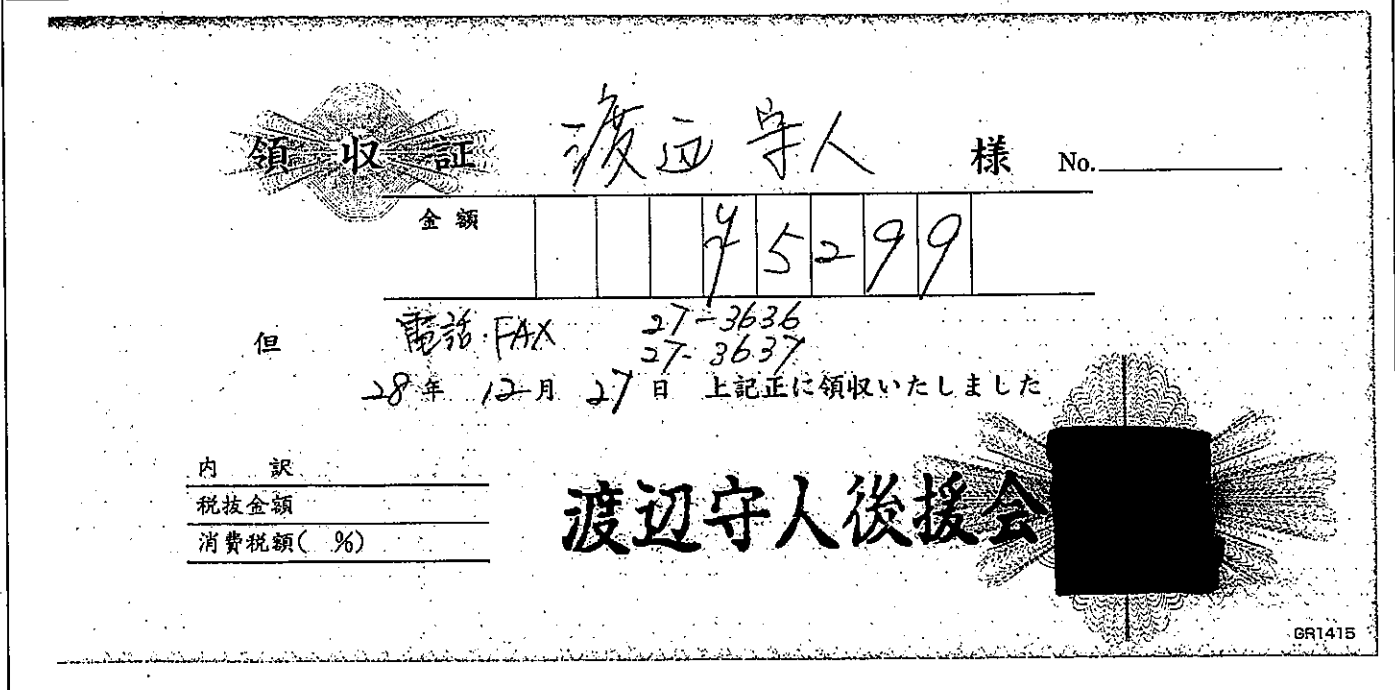 領収証 渡辺守人 様 No.
金額 ¥5299
但 電話・FAX 27-3636
27-3637
28年 12月 27日 上記正に領収いたしました
内訳
税抜金額
消費税額( %)
渡辺守人後援会
GR1415